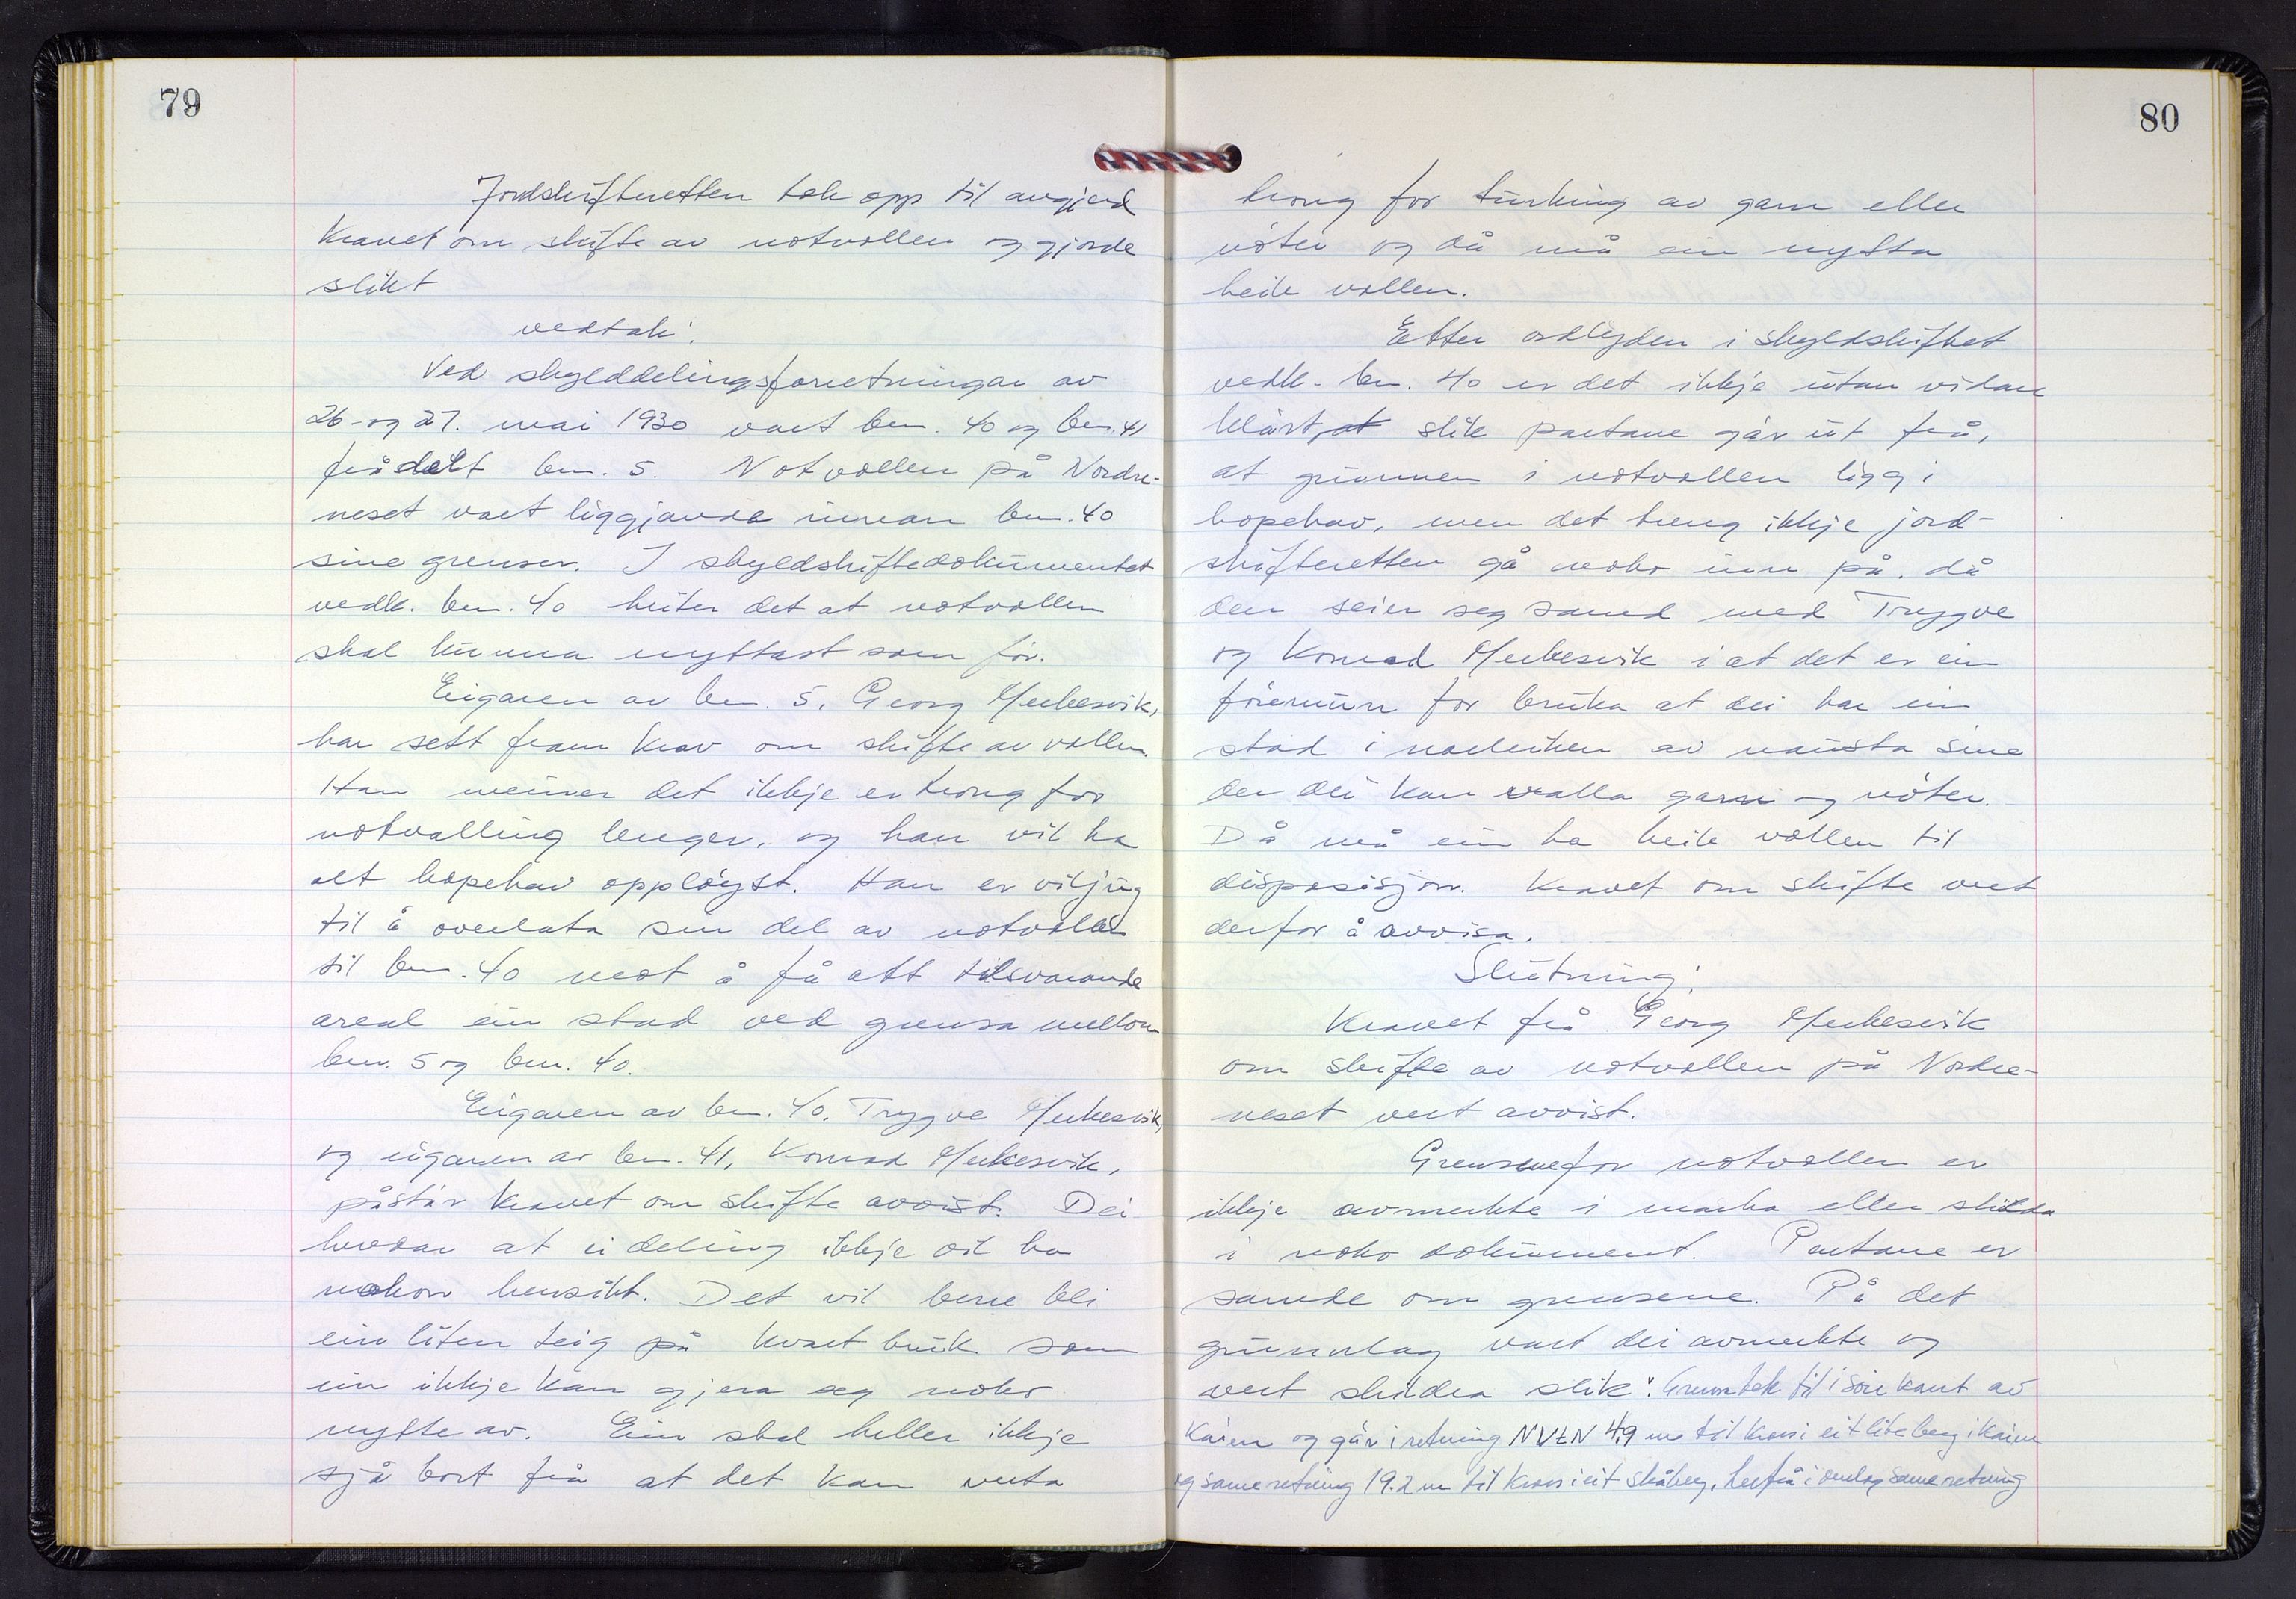 79
Jordskifteretten tok opp til avgjerd
kravet om skifte av notvollen og gjorde
slikt
vedtak:
Ved skylddelingsforretningar av
26- og 27. mai 1930 vart bnr. 40 og bnr. 41
frådelt bnr. 5. Notvollen på Nordre-
neset vart liggjande innan bnr. 40
sine grenser. I skyldskiftedokumentet
vedk. bnr. 40 heiter det at notvollen
skal kunna nyttast som før.
Eigaren av bnr. 5, Georg Merkesvik,
har sett fram krav om skifte av vollen.
Han meiner det ikkje er trong for
notvolling lenger, og han vil ha
alt hopehav oppløyst. Han er viljug
til å overlata sin del av notvollen
til bnr. 40 mot å få att tilsvarande
areal ein stad ved grensa mellom
bnr. 5 og bnr. 40.
Eigaren av bnr. 40, Trygve Merkesvik,
og eigaren av bnr. 41, Konrad Merkesvik,
påstår kravet om skifte avvist. Dei
hevdar at ei deling ikkje vil ha
nokon hensikt. Det vil berre bli
ein liten teig på kvart bruk som
ein ikkje kan gjera seg noko
nytte av. Ein skal heller ikkje
sjå bort frå at det kan verta
80
trong for turking av garn eller
nøter og då må ein nytta
heile vollen.
Etter ordlyden i skyldskiftet
vedk. bnr. 40 er det ikkje utan vidare
klårt, at slik partane går ut frå,
at grunnen i notvollen ligg i
hopehav, men det treng ikkje jord-
skifteretten gå noko inn på, då
den seier seg samd med Trygve
og Konrad Merkesvik i at det er ein
føremun for bruka at dei har ein
stad i nærleiken av nausta sine
der dei kan valla garn og nøter.
Då må ein ha heile vollen til
disposisjon. Kravet om skifte vert
derfor å avvisa.
Slutning:
Kravet frå Georg Merkesvik
om skifte av notvollen på Nordre-
neset vert avvist.
Grensene for notvollen er
ikkje avmerkte i marka eller skilda
i noko dokument. Partane er
samde om grensene. På det
grunnlag vart dei avmerkte og
vert skildra slik: Grensa tek til i søre kant av
kaien og går i retning NVtN 4.9 m til kross i eit lite berg i kaien
og same retning 19.2 m til kross i eit skåberg, herfrå i omlag same retning